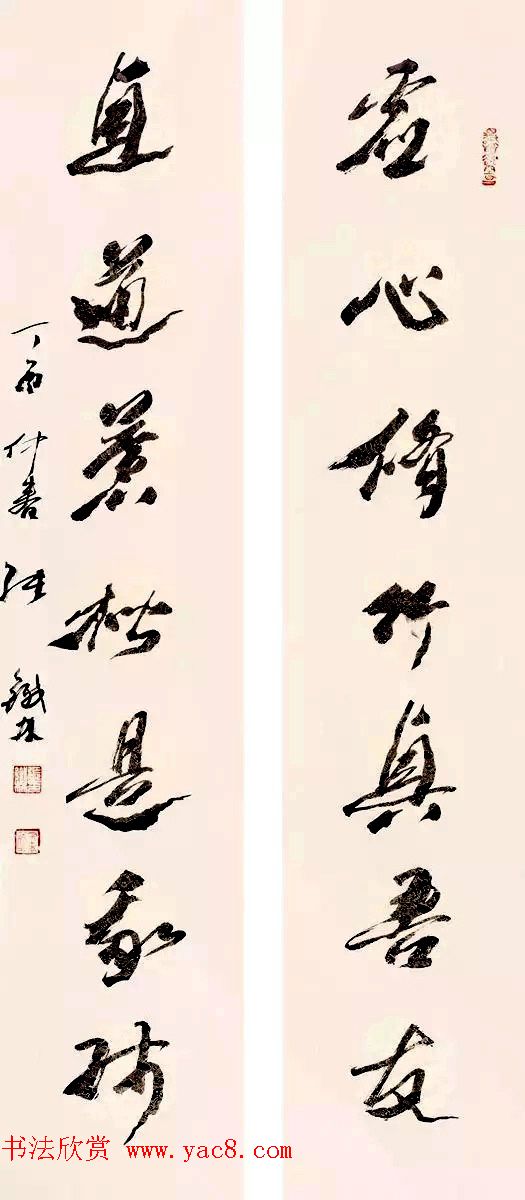 虚心脩竹真吾友
直道黄楷是我師
丁酉仲春 張鐵林
书法欣赏 www.yac8.com